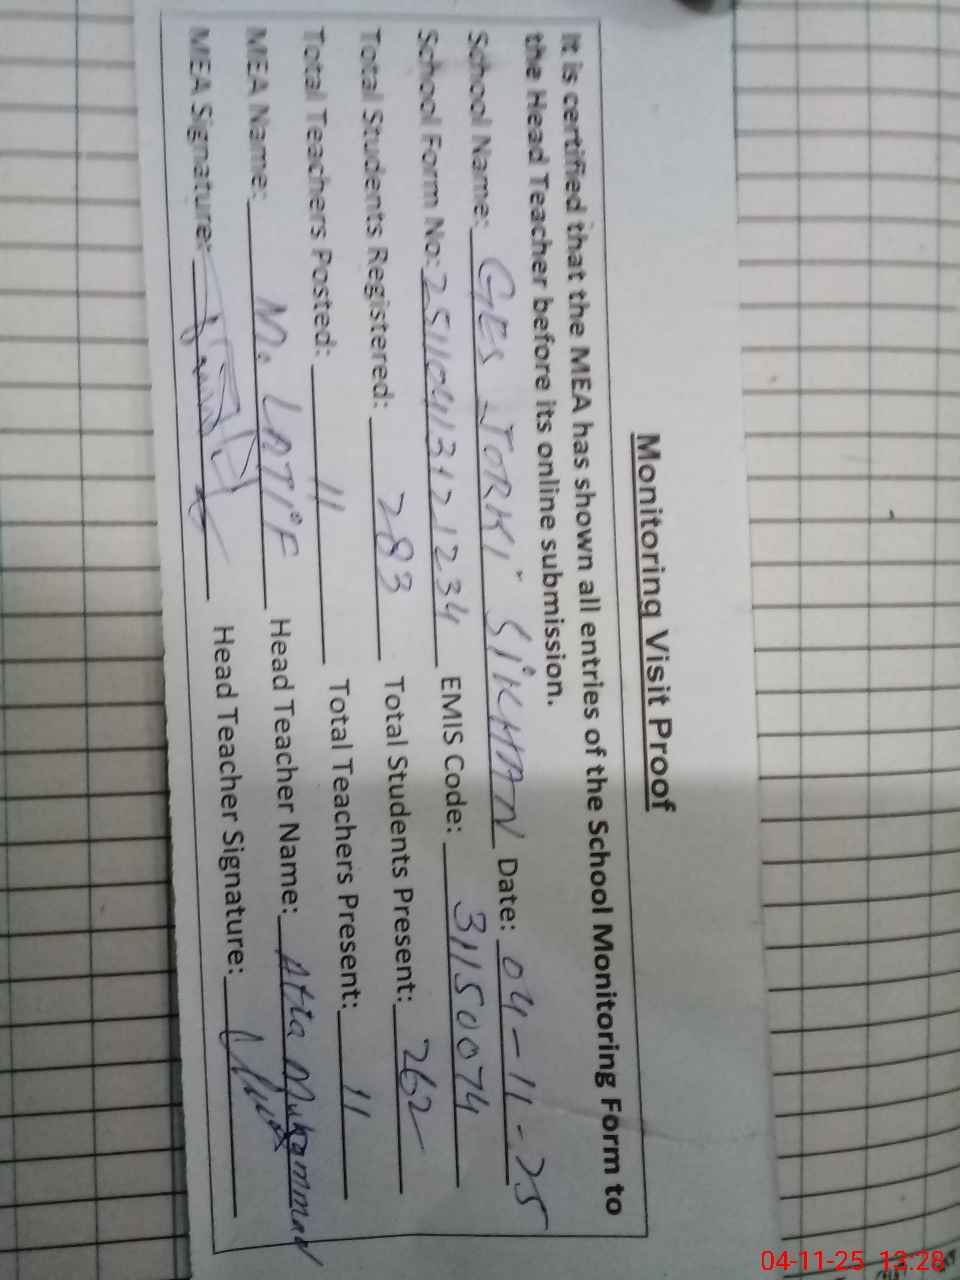 Monitoring Visit Proof
It is certified that the MEA has shown all entries of the School Monitoring Form to
the Head Teacher before its online submission.
School Name: GES JORKI SIKHAN Date: 04-11-25
School Form No: 2511041312 1234 EMIS Code: 31150074
Total Students Registered: 283 Total Students Present: 262
Total Teachers Posted: 11 Total Teachers Present: 11
MEA Name: M. LATIF Head Teacher Name: Atta Muhammad
MEA Signature: Head Teacher Signature:
04-11-25 13:28